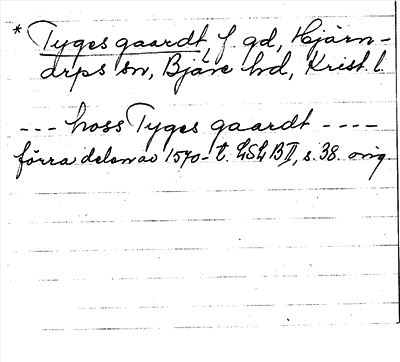 * Tyges gaardt, f. gd, Hjärn-
arps sn, Bjäre hd, Krist. l.
--- hoss Tyges gaardt ----
förra delen av 1570-t. LSLB II, s. 38. orig.